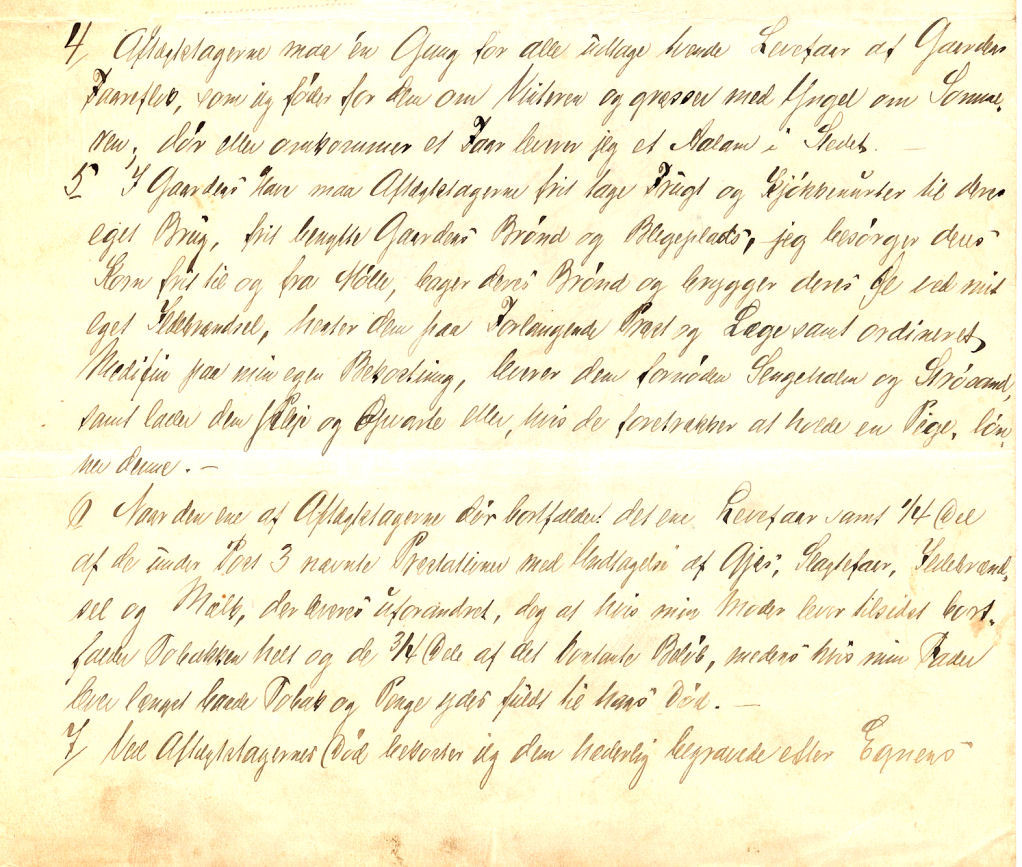 4/ Aftægtstagerne maa én Gang for alle udtage tvende Levefaar af Gaardens
Faareflok, som jeg føder for dem om Vinteren og græsser med Yngel om Somme-
ren; dør eller omkommer et Faar leverer jeg et Aalam i Stedet. —
5 I Gaardens Have maa Aftægtstagerne frit tage Frugt og Kjøkkenurter til deres
eget Brug, frit benytte Gaardens Brønd og Blegeplads, jeg besørger deres
Korn frit til og fra Mølle, bager deres Brønd og brygger deres Øl ved mit
eget Ildebrændsel, henter dem paa Forlangende Præst og Læge samt ordineret
Medisin paa min egen Bekostning, leverer dem fornøden Sengehalm og Strøsand,
samt lader dem pleje og opvarte eller, hvis de foretrækker at holde en Pige, løn-
ner denne. —
Naar den ene af Aftægtstagerne dør bortfalder det ene Levefaar samt 1/4 Del
af de under Post 3 nævnte Præstationer med Undtagelse af Gjæs, Slagtefaar, Ildebrænd-
sel og Mælk, der leveres uforandret, dog at hvis min Moder lever tilsidst bort-
falder Tobakken helt og de 3/4 Dele af det kontante Beløb, medens hvis min Fader
lever længst baade Tobak og Penge ydes fuldt til hans Død. —
7/ Ved Aftægtstagernes Død bekoster jeg dem hæderlig begravede efter Egnens